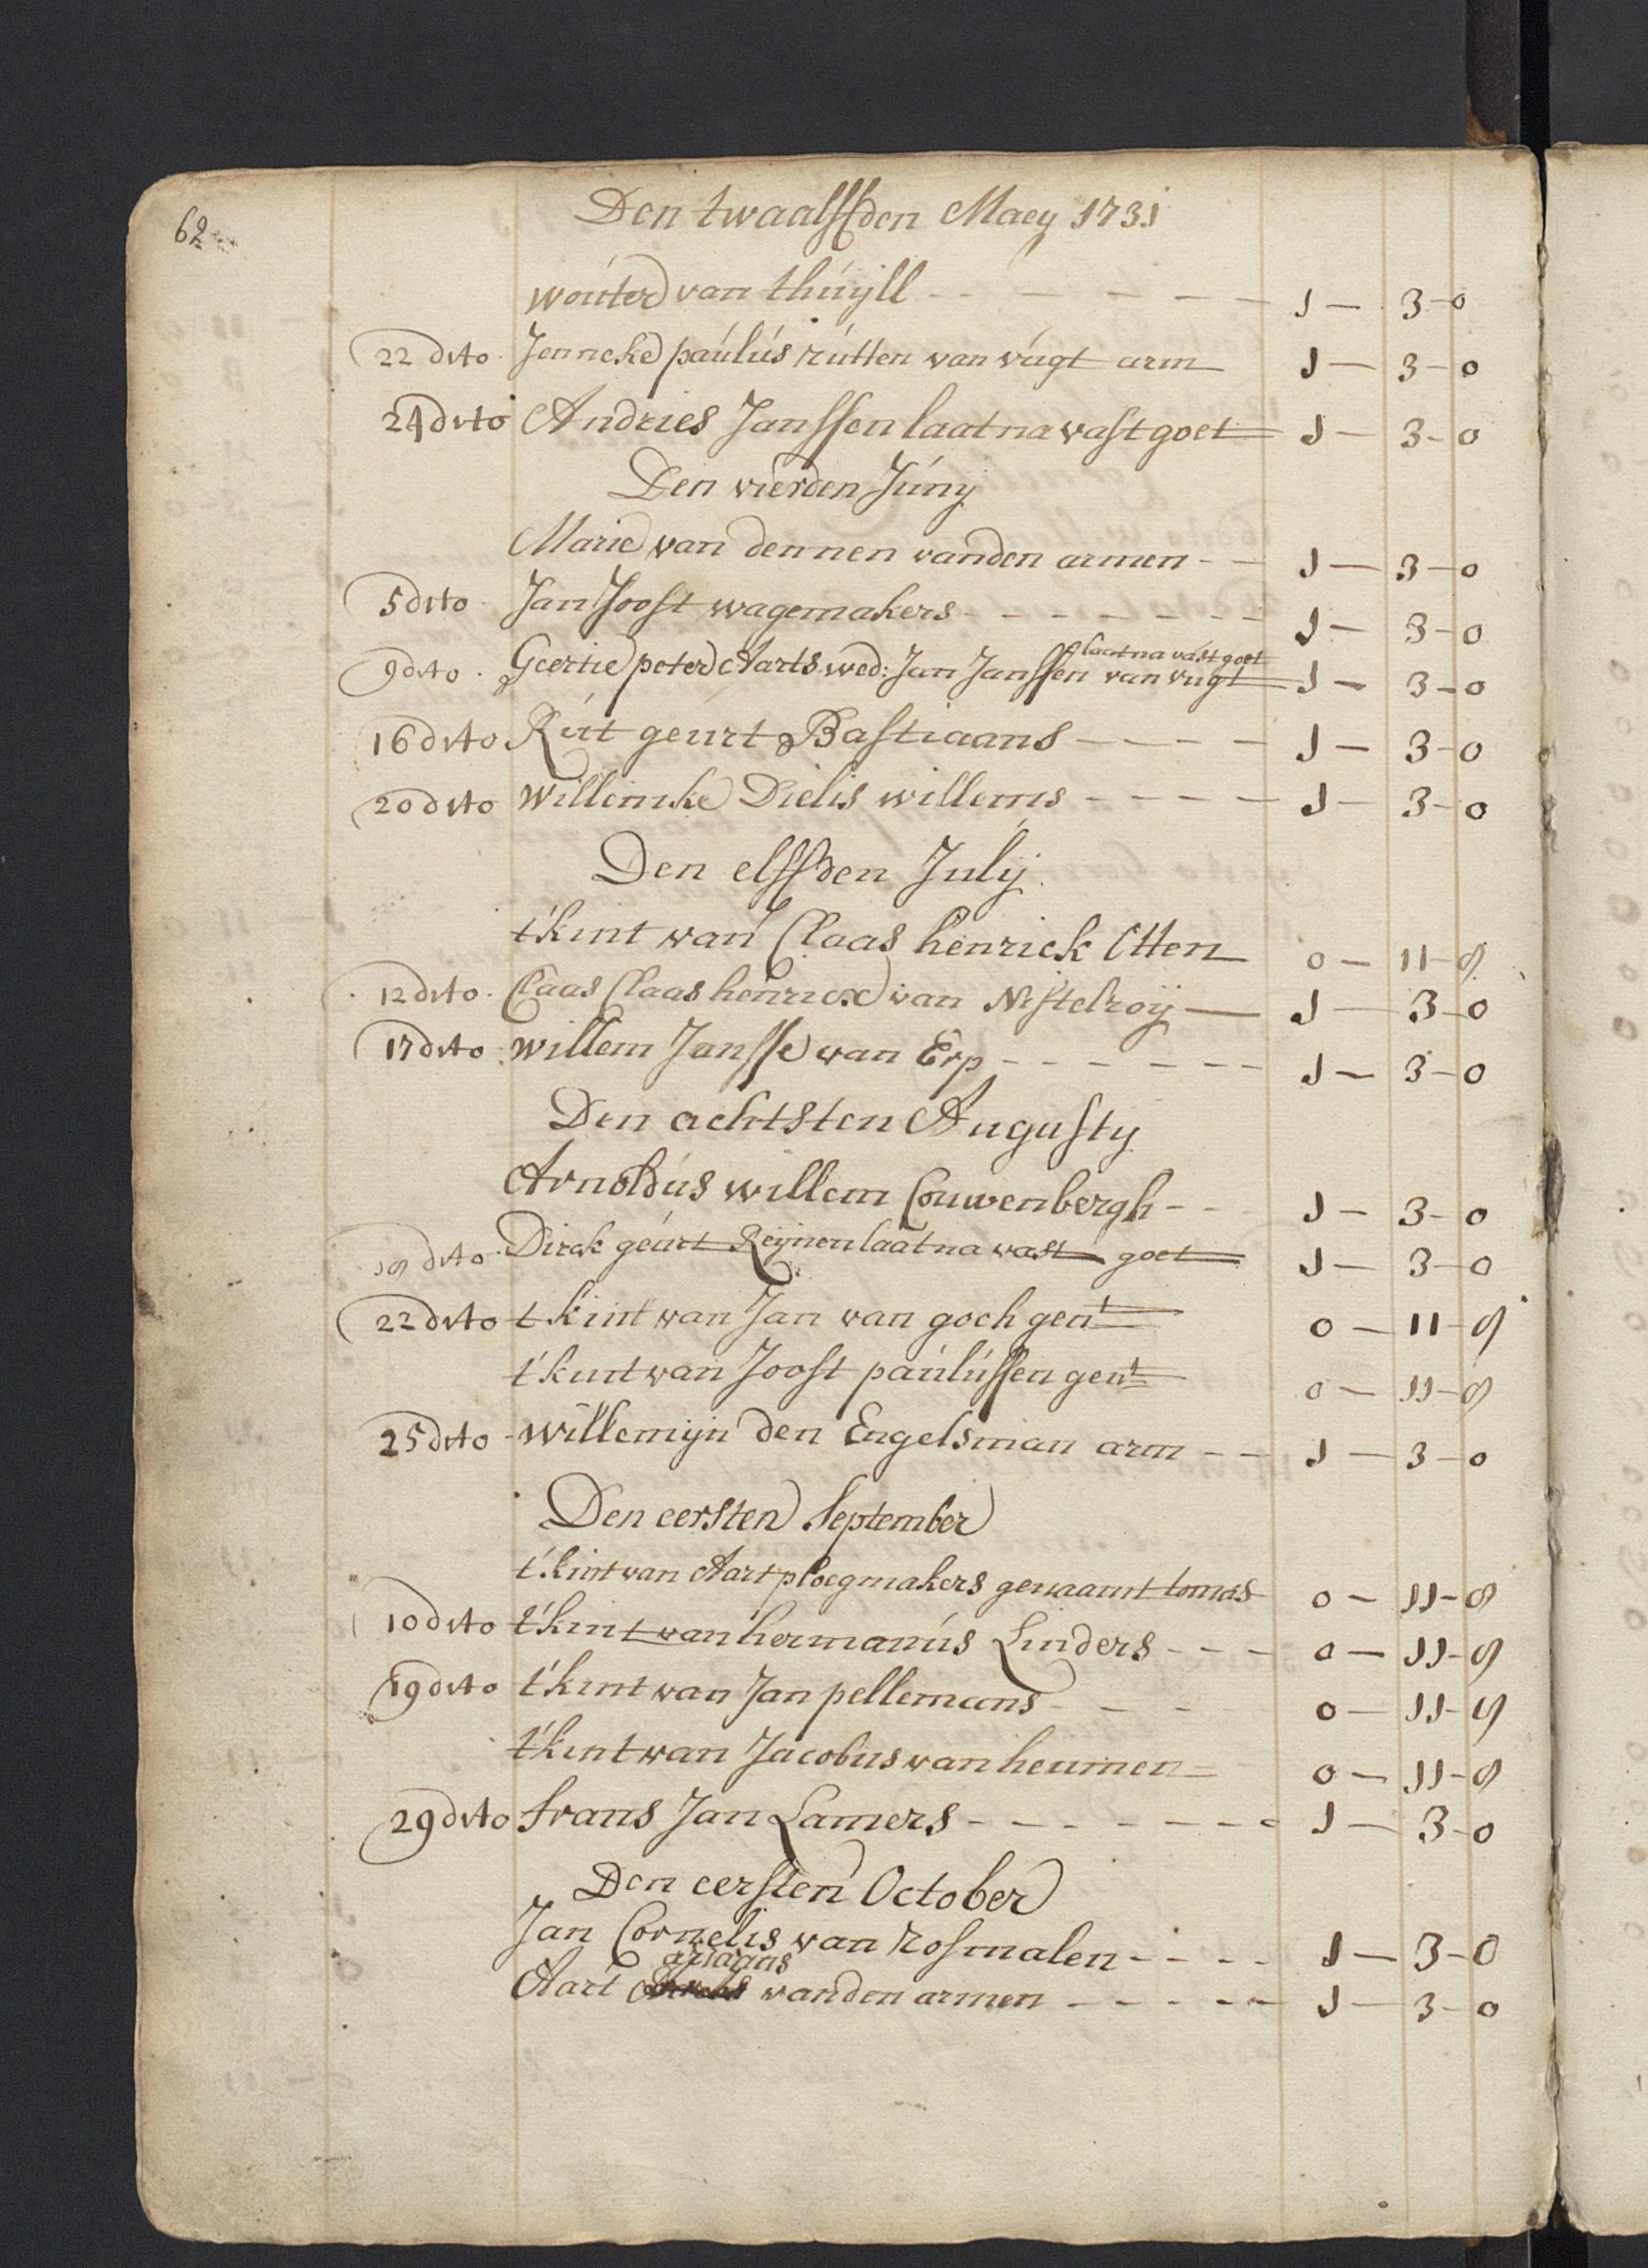 62
Den twaalffden Maey 1731
wouter van thuijll - - - - - - 1 - 3 - 0
22 dito Jenneke paulus rutten van vugt arm 1 - 3 - 0
24 dito Andries Janssen laat na vast goet 1 - 3 - 0
Den vierden Junij
Marie van dennen vanden armen - - 1 - 3 - 0
5 dito Jan Joost wagemakers - - - - - - - 1 - 3 - 0
laat na vast goet
9 dito Geertie peter Aarts wed: Jan Janssen van vugt 1 - 3 - 0
16 dito Rut geurt Bastiaans - - - - 1 - 3 - 0
20 dito Willemke Dielis willems - - - - 1 - 3 - 0
Den elffden Julij
t'kint van Claas henrick Otten 0 - 11 - 8
12 dito Claas Claas henricx van Nistelroij 1 - 3 - 0
17 dito willem Jansse van Erp - - - - - - 1 - 3 - 0
Den achtsten Augusty
Arnoldus willem Couwenbergh - - 1 - 3 - 0
dito Dirck geurt Reijnen laat na vast goet 1 - 3 - 0
22 dito t kint van Jan van goch gent 0 - 11 - 8
t'kint van Joost paulussen gent 0 - 11 - 8
25 dito Willemijn den Engelsman arm - - 1 - 3 - 0
Den eersten September
t'kint van Aart ploegmakers genaamt tomas 0 - 11 - 8
10 dito t'kint van hermanus Linders - - - 0 - 11 - 8
19 dito t'kint van Jan pellemans - - - 0 - 11 - 8
t'kint van Jacobus van heumen 0 - 11 - 8
29 dito frans Jan Lamers - - - - - - - 1 - 3 - 0
Den eersten October
Jan Cornelis van rosmalen - - - - 1 - 3 - 0
ariaans
Aart vanden armen - - - - - 1 - 3 - 0